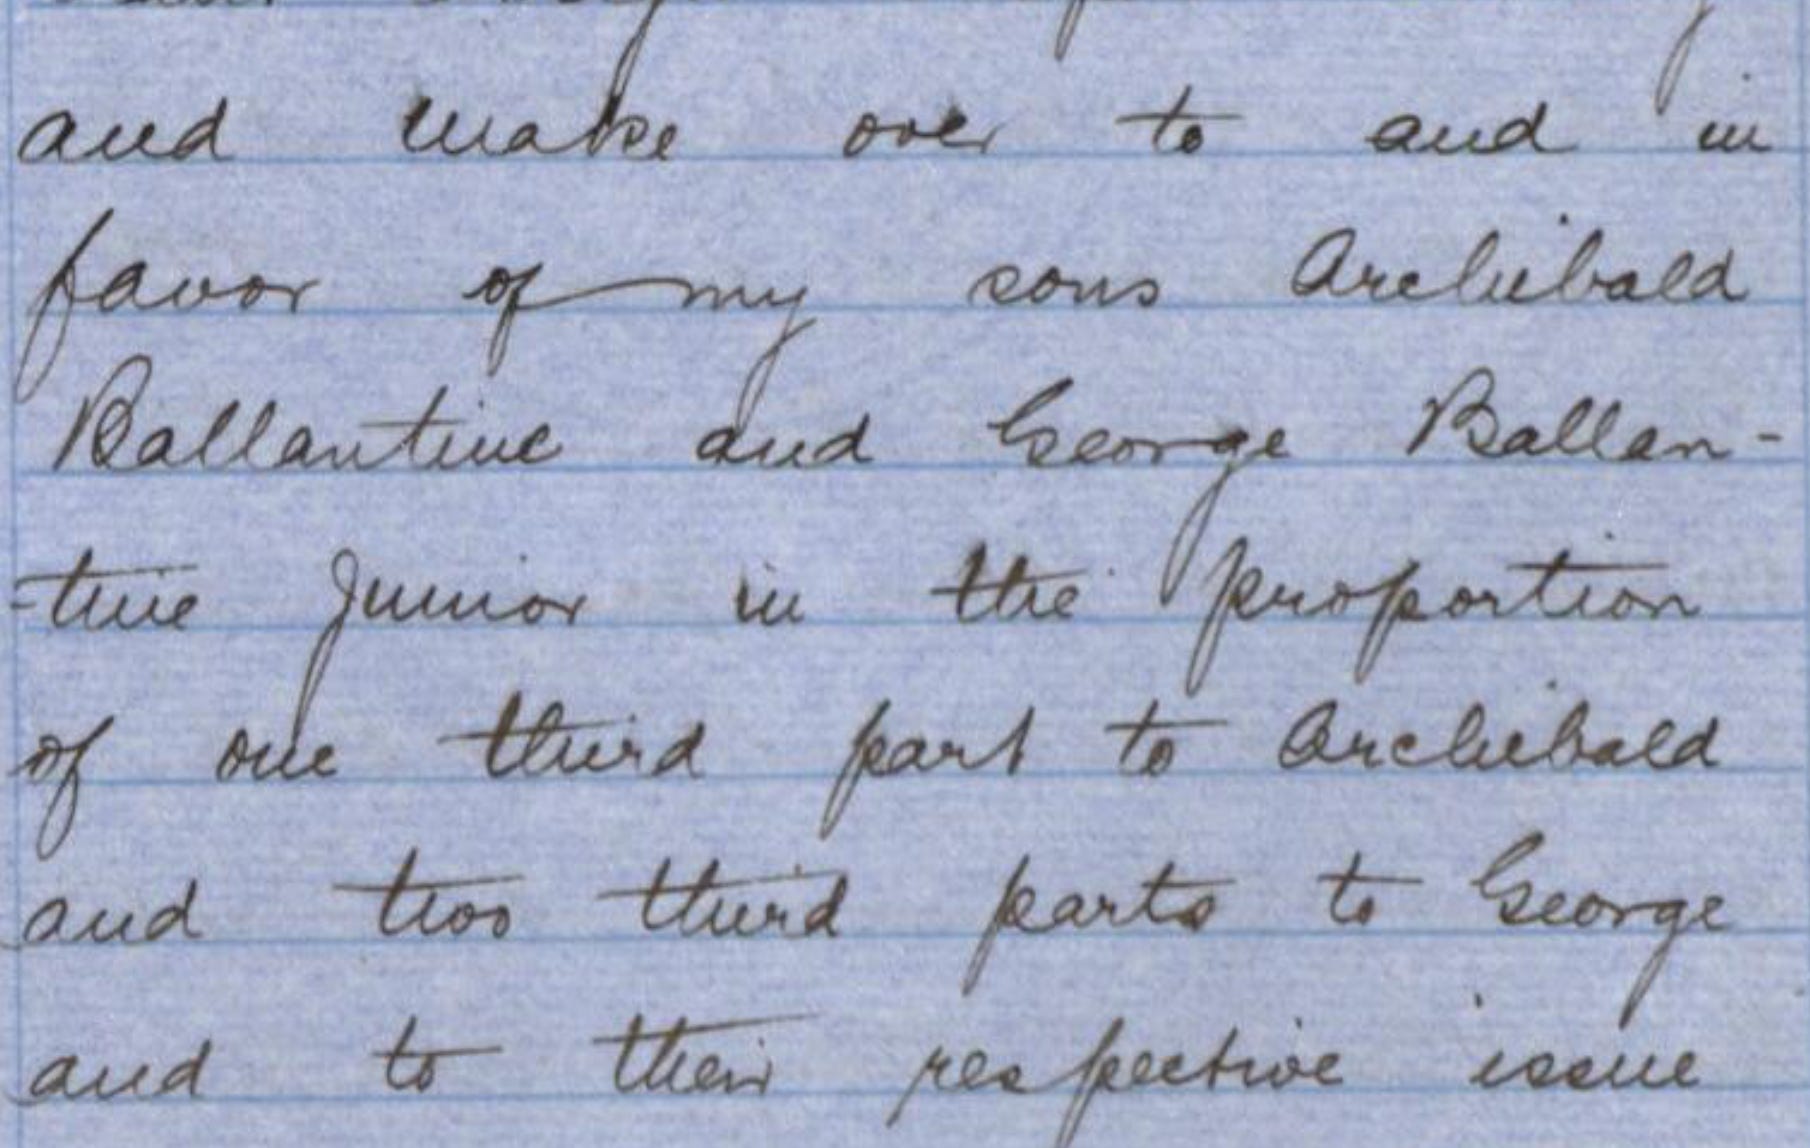 and make over to and in
favor of my sons Archibald
Ballantine and George Ballan-
-tine Junior in the proportion
of one third part to Archibald
and two third parts to George
and to their respective issue